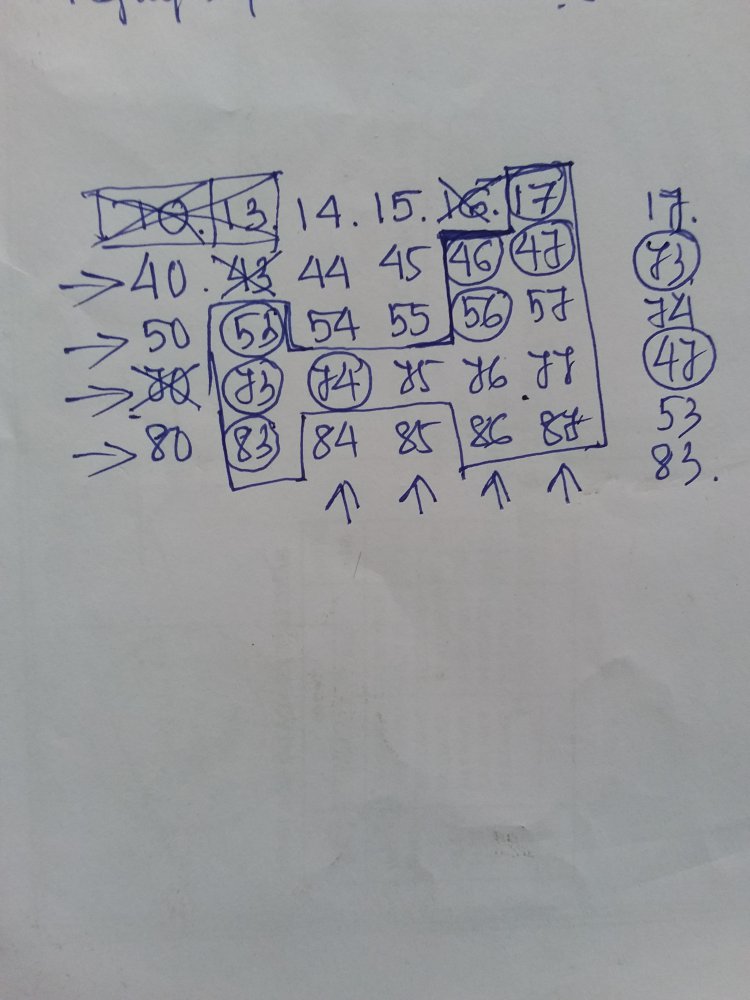 10. 13. 14. 15. 16. 17 17.
→ 40. 43 44 45 46 47 73
→ 50 53 54 55 56 57 74
→ 70 73 74 75 76 77 47
→ 80 83 84 85 86 87 53
↑ ↑ ↑ ↑ 83.